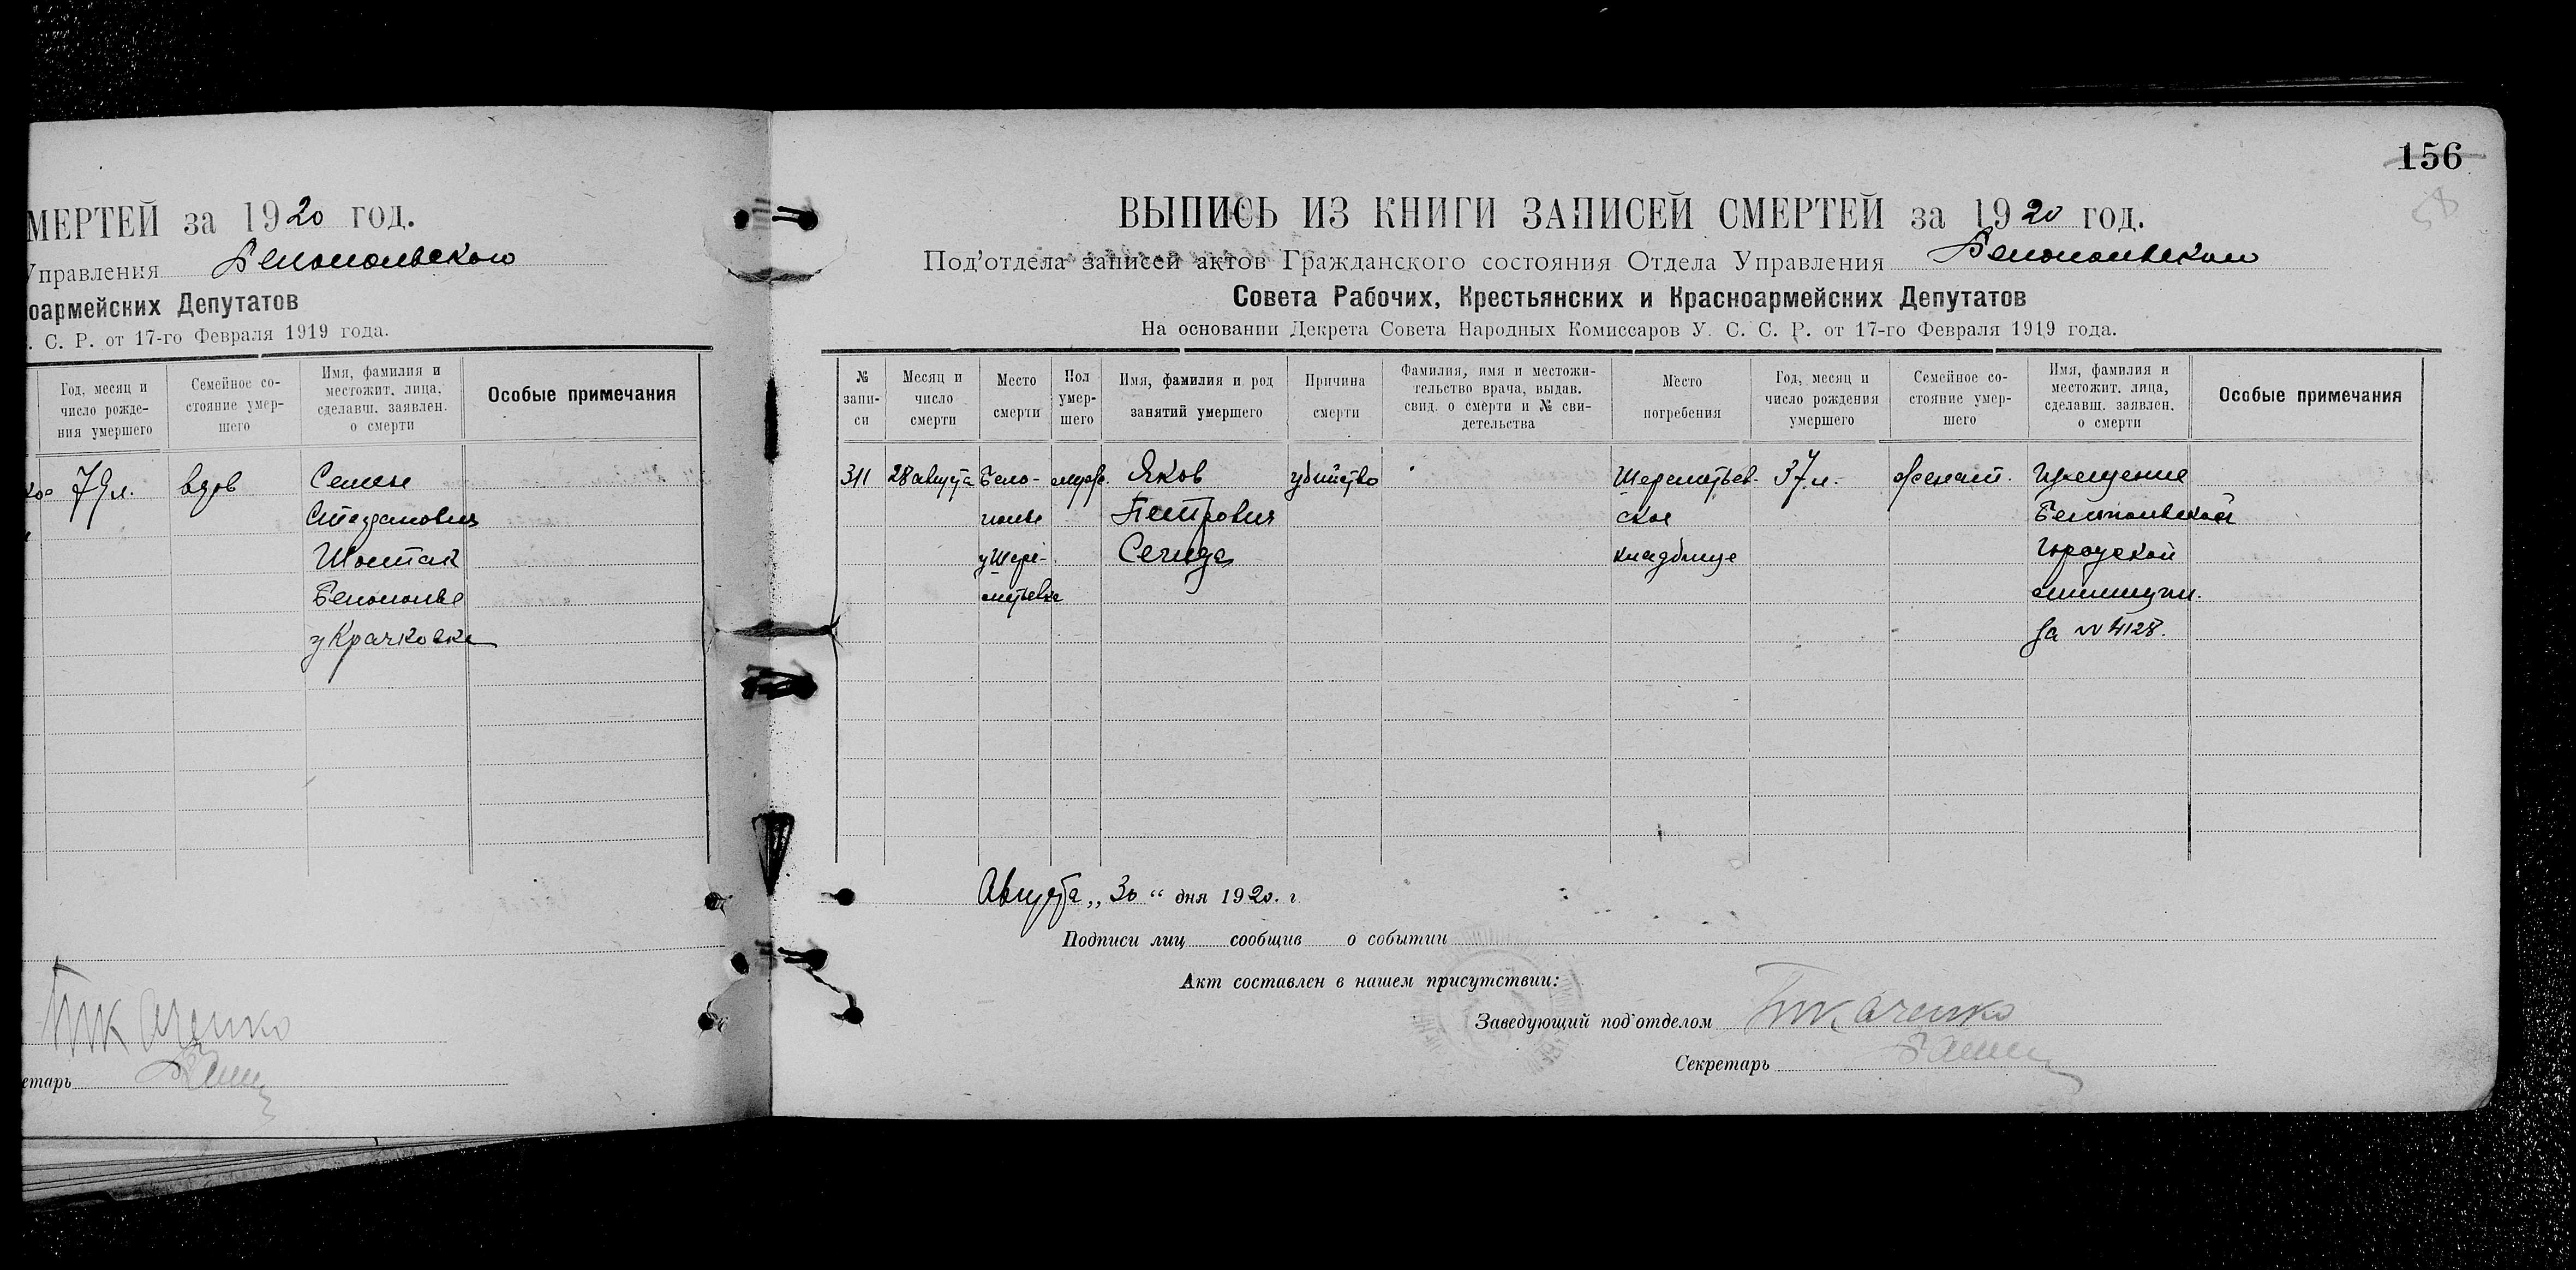 МЕРТЕЙ за 1920 год.
Управления Белопольского
оармейских Депутатов
. С. Р. от 17-го Февраля 1919 года.
Год, месяц и число рожде- ния умершего
Семейное со- стояние умер- шего
Имя, фамилия и местожит. лица, сделавш. заявлен. о смерти
Особые примечания
79 л. вдов Семен
Шостак
Белополье
у Крачковке
Ткаченко
етарь
156
58
ВЫПИСЬ ИЗ КНИГИ ЗАПИСЕЙ СМЕРТЕЙ за 1920 год.
Под'отдела записей актов Гражданского состояния Отдела Управления Белопольского
Совета Рабочих, Крестьянских и Красноармейских Депутатов
На основании Декрета Совета Народных Комиссаров У. С. С. Р. от 17-го Февраля 1919 года.
№ запи- си
Месяц и число смерти
Место смерти
Пол умер- шего
Имя, фамилия и род занятий умершего
Причина смерти
Фамилия, имя и местожи- тельство врача, выдав. свид. о смерти и № сви- детельства
Место погребения
Год, месяц и число рождения умершего
Семейное со- стояние умер- шего
Имя, фамилия и местожит. лица, сделавш. заявлен. о смерти
Особые примечания
311 28 августа Бело- муж. Яков убийство Шереметьев- 37 л. женат.
полье Петрович ское Белопольской
у Шере- Сечида кладбище городской
метьевке милиции
за № 4128.
Августа „30“ дня 1920. г.
Подписи лиц сообщив о событии
Акт составлен в нашем присутствии:
Заведующий под'отделом Ткаченко
Секретарь